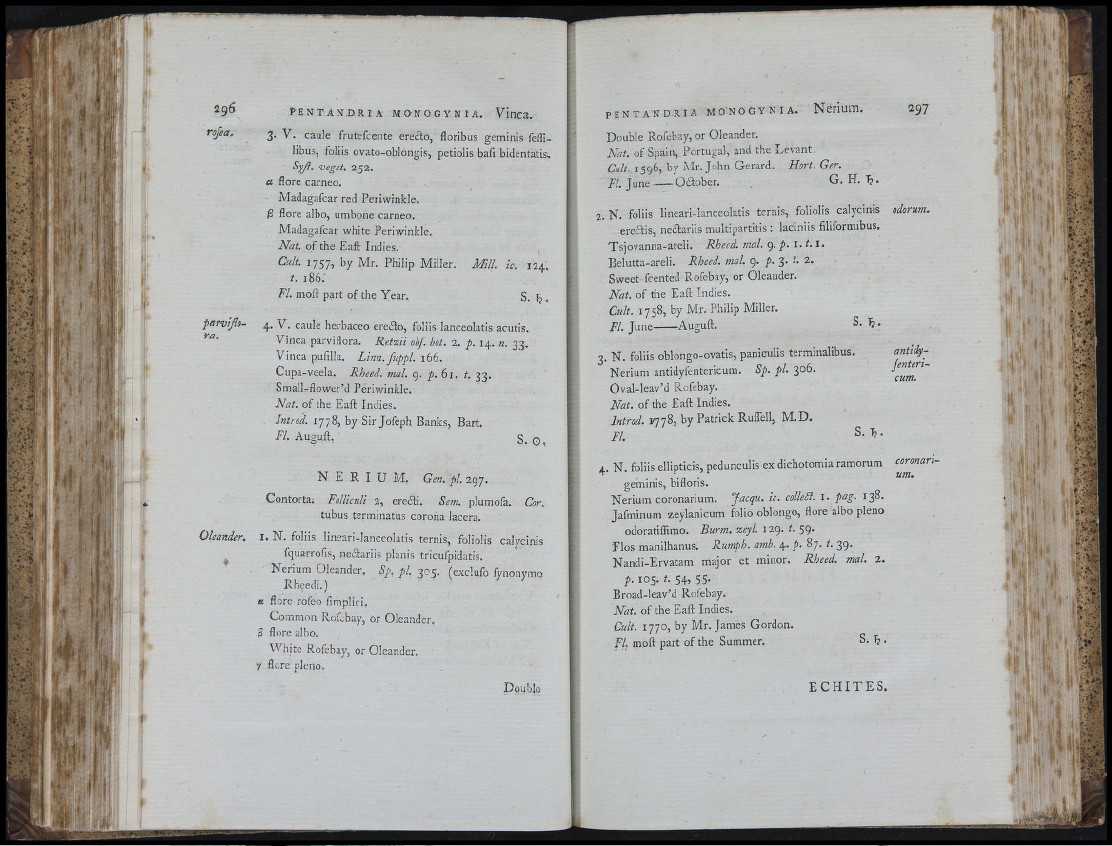 296 PENTANDRIA MONOGYNIA. Vinca.
rosea. 3. V. caule fruteſcente erecto, floribus geminis ſeſſi-
libus, foliis ovato-oblongis, petiolis baſi bidentatis.
Syſt. veget. 252.
α flore carneo.
Madagaſcar red Periwinkle.
β flore albo, umbone carneo.
Madagaſcar white Periwinkle.
Nat. of the Eaſt Indies.
Cult. 1757, by Mr. Philip Miller. Mill. ic. 124.
t. 186.
Fl. moſt part of the Year. S. ♄.
parviflo- 4. V. caule herbaceo erecto, foliis lanceolatis acutis.
ra. Vinca parviflora. Retzii obſ. bot. 2. p. 14. n. 33.
Vinca puſilla. Linn. ſuppl. 166.
Cupa-veela. Rheed. mal. 9. p. 61. t. 33.
Small-flower'd Periwinkle.
Nat. of the Eaſt Indies.
Introd. 1778, by Sir Joſeph Banks, Bart.
Fl. Auguſt. S. ⊙.
NERIUM. Gen. pl. 297.
Contorta. Folliculi 2, erecti. Sem. plumoſa. Cor.
tubus terminatus corona lacera.
Oleander. 1. N. foliis lineari-lanceolatis ternis, foliolis calycinis
ſquarroſis, nectariis planis tricuſpidatis.
Nerium Oleander. Sp. pl. 305. (excluſo ſynonymo
Rheedi.)
α flore roſeo ſimplici.
Common Roſebay, or Oleander.
β flore albo.
White Roſebay, or Oleander.
γ flore pleno.
Double
PENTANDRIA MONOGYNIA. Nerium. 297
Double Roſebay, or Oleander.
Nat. of Spain, Portugal, and the Levant.
Cult. 1596, by Mr. John Gerard. Hort. Ger.
Fl. June —— October. G. H. ♄.
2. N. foliis lineari-lanceolatis ternis, foliolis calycinis odorum.
erectis, nectariis multipartitis: laciniis filiformibus.
Tsjovanna-areli. Rheed. mal. 9. p. 1. t. 1.
Belutta-areli. Rheed. mal. 9. p. 3. t. 2.
Sweet-ſcented Roſebay, or Oleander.
Nat. of the Eaſt Indies.
Cult. 1758, by Mr. Philip Miller.
Fl. June——Auguſt. S. ♄.
3. N. foliis oblongo-ovatis, paniculis terminalibus. antidy-
Nerium antidyſentericum. Sp. pl. 306. ſenteri-
cum.
Oval-leav'd Roſebay.
Nat. of the Eaſt Indies.
Introd. 1778, by Patrick Ruſſell, M.D.
Fl. S. ♄.
4. N. foliis ellipticis, pedunculis ex dichotomia ramorum coronari-
geminis, bifloris. um.
Nerium coronarium. Jacqu. ic. collect. 1. pag. 138.
Jaſminum zeylanicum folio oblongo, flore albo pleno
odoratiſſimo. Burm. zeyl. 129. t. 59.
Flos manilhanus. Rumph. amb. 4. p. 87. t. 39.
Nandi-Ervatam major et minor. Rheed. mal. 2.
p. 105. t. 54, 55.
Broad-leav'd Roſebay.
Nat. of the Eaſt Indies.
Cult. 1770, by Mr. James Gordon.
Fl. moſt part of the Summer. S. ♄.
ECHITES.